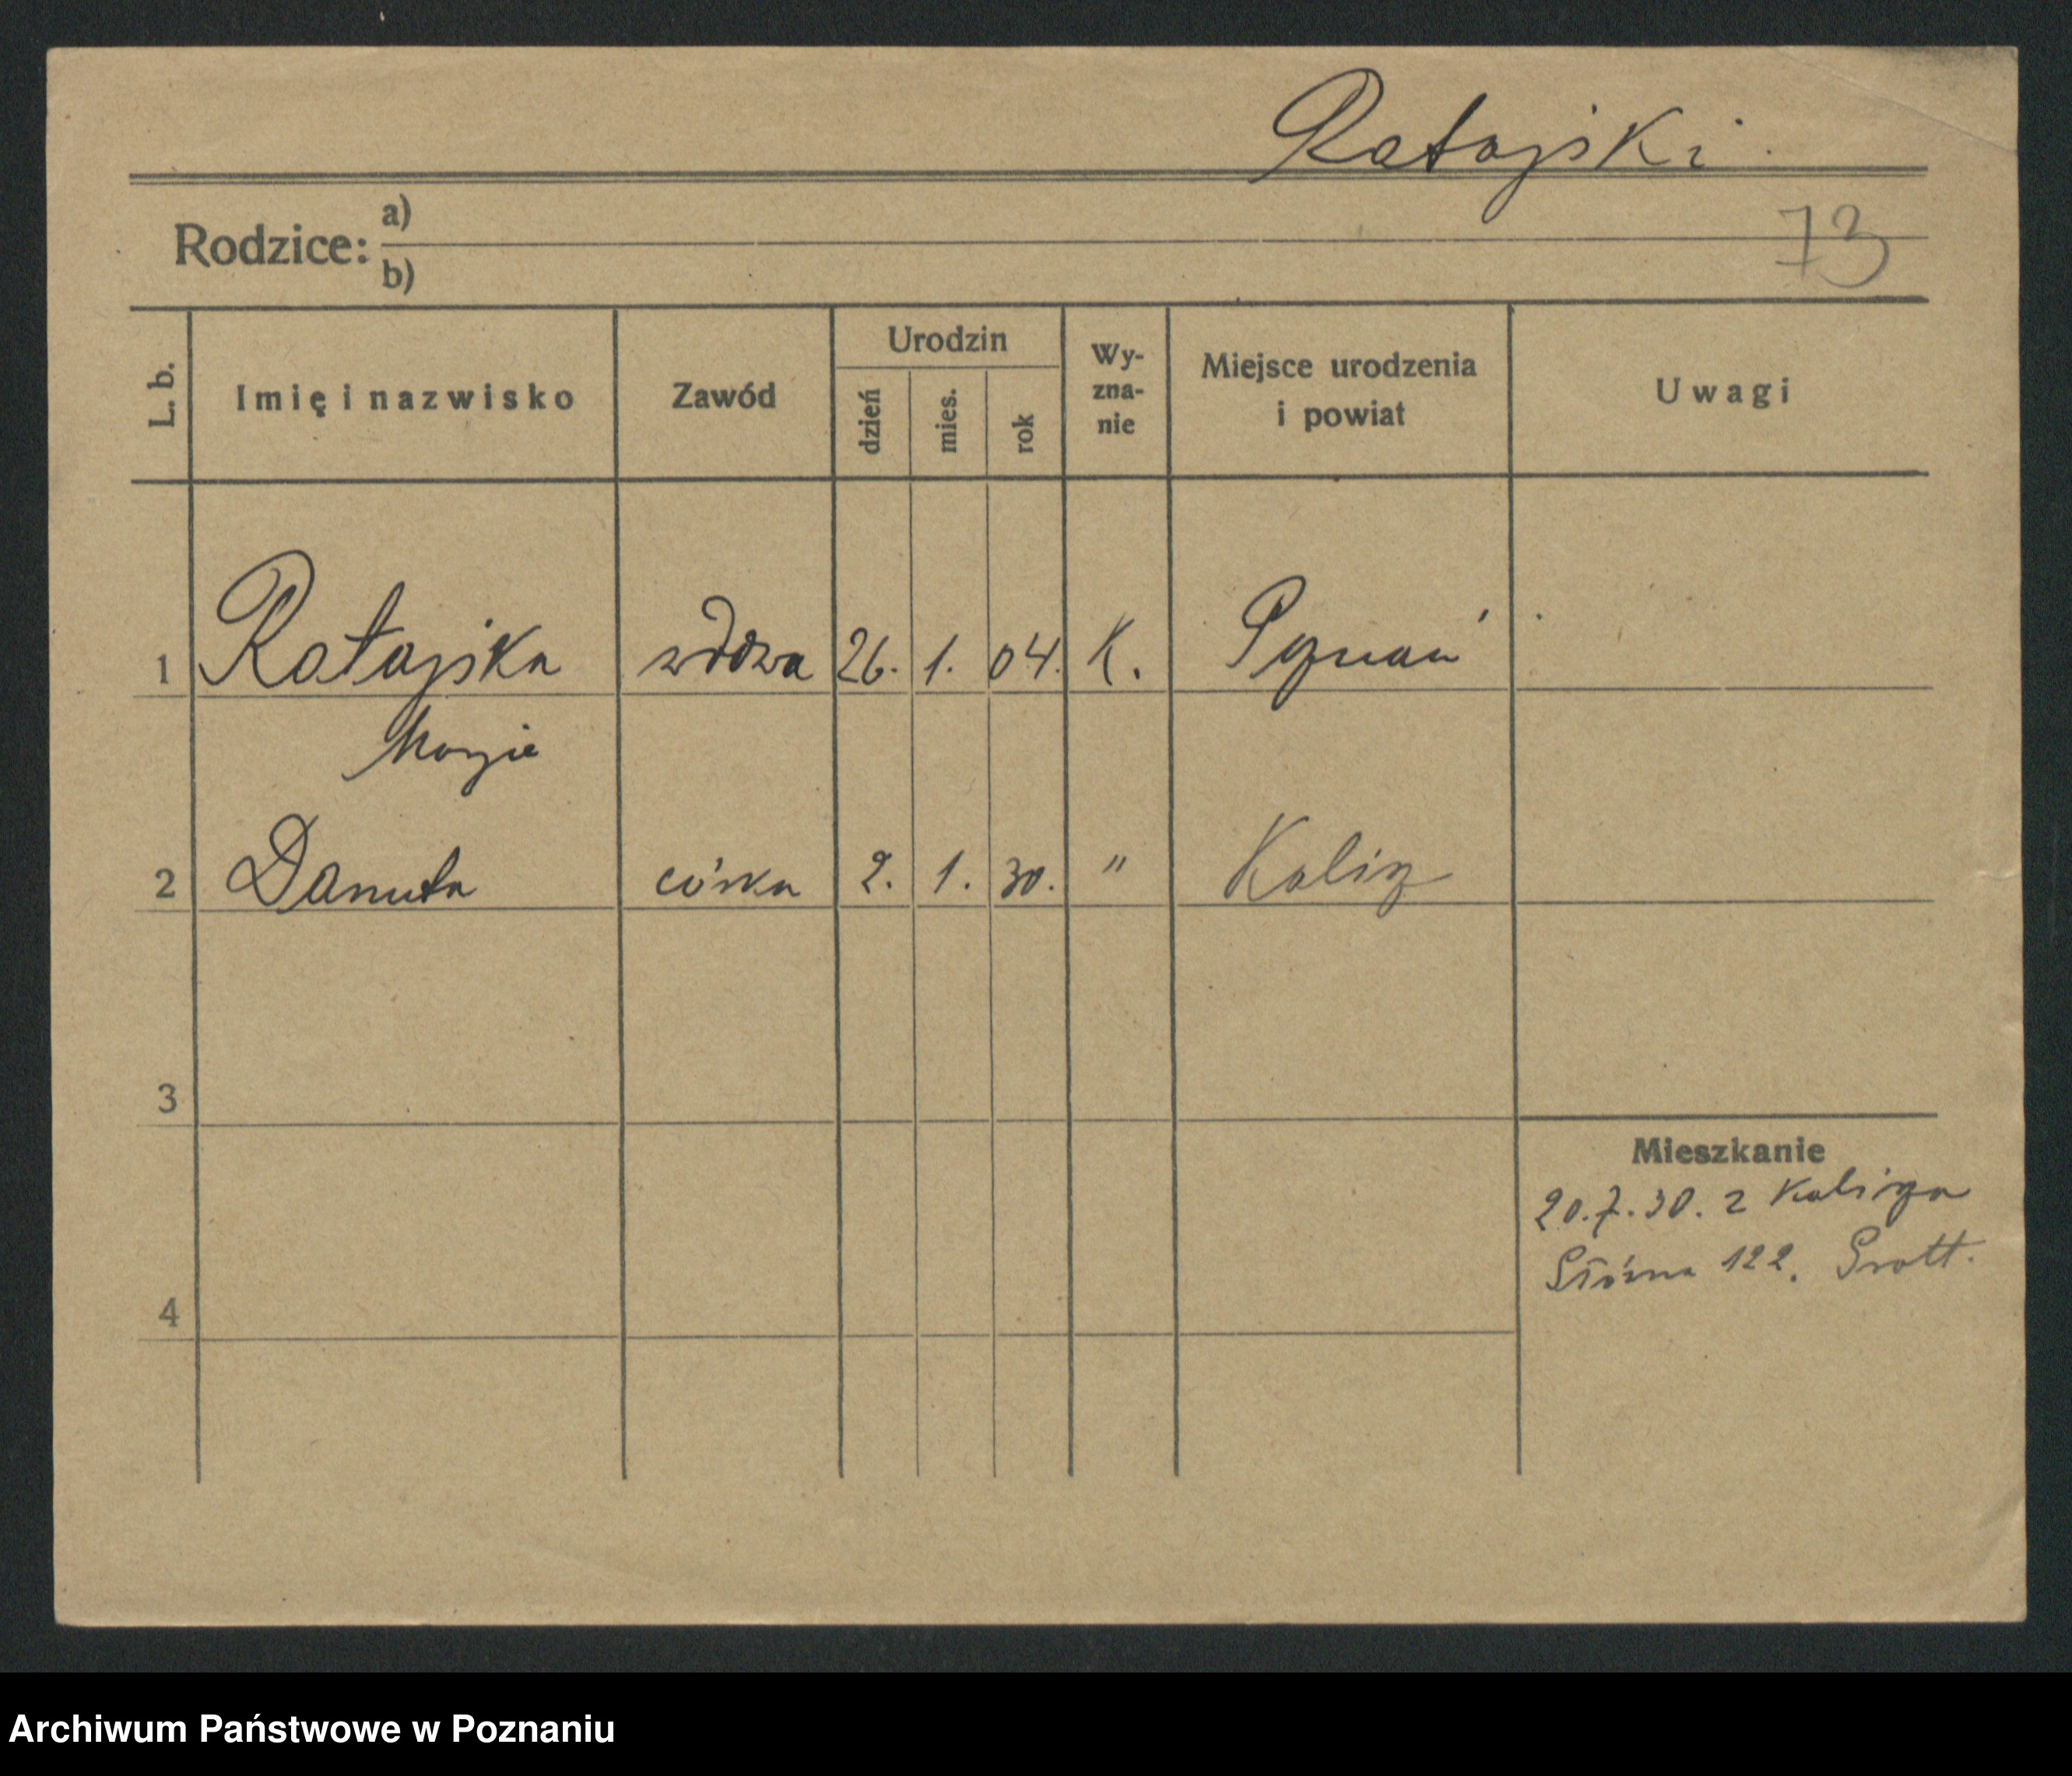 Ratajski.
73
Rodzice: a)
b)
L. b. Imię i nazwisko Zawód Urodzin dzień mies. rok Wy-zna-nie Miejsce urodzenia i powiat Uwagi
1 Ratajska wdowa 26. 1. 04. K. Poznań
Marja
2 Danuta córka 2. 1. 30. " Kalisz
3
Mieszkanie
20.7.30. z Kalisza
122.
4
Archiwum Państwowe w Poznaniu